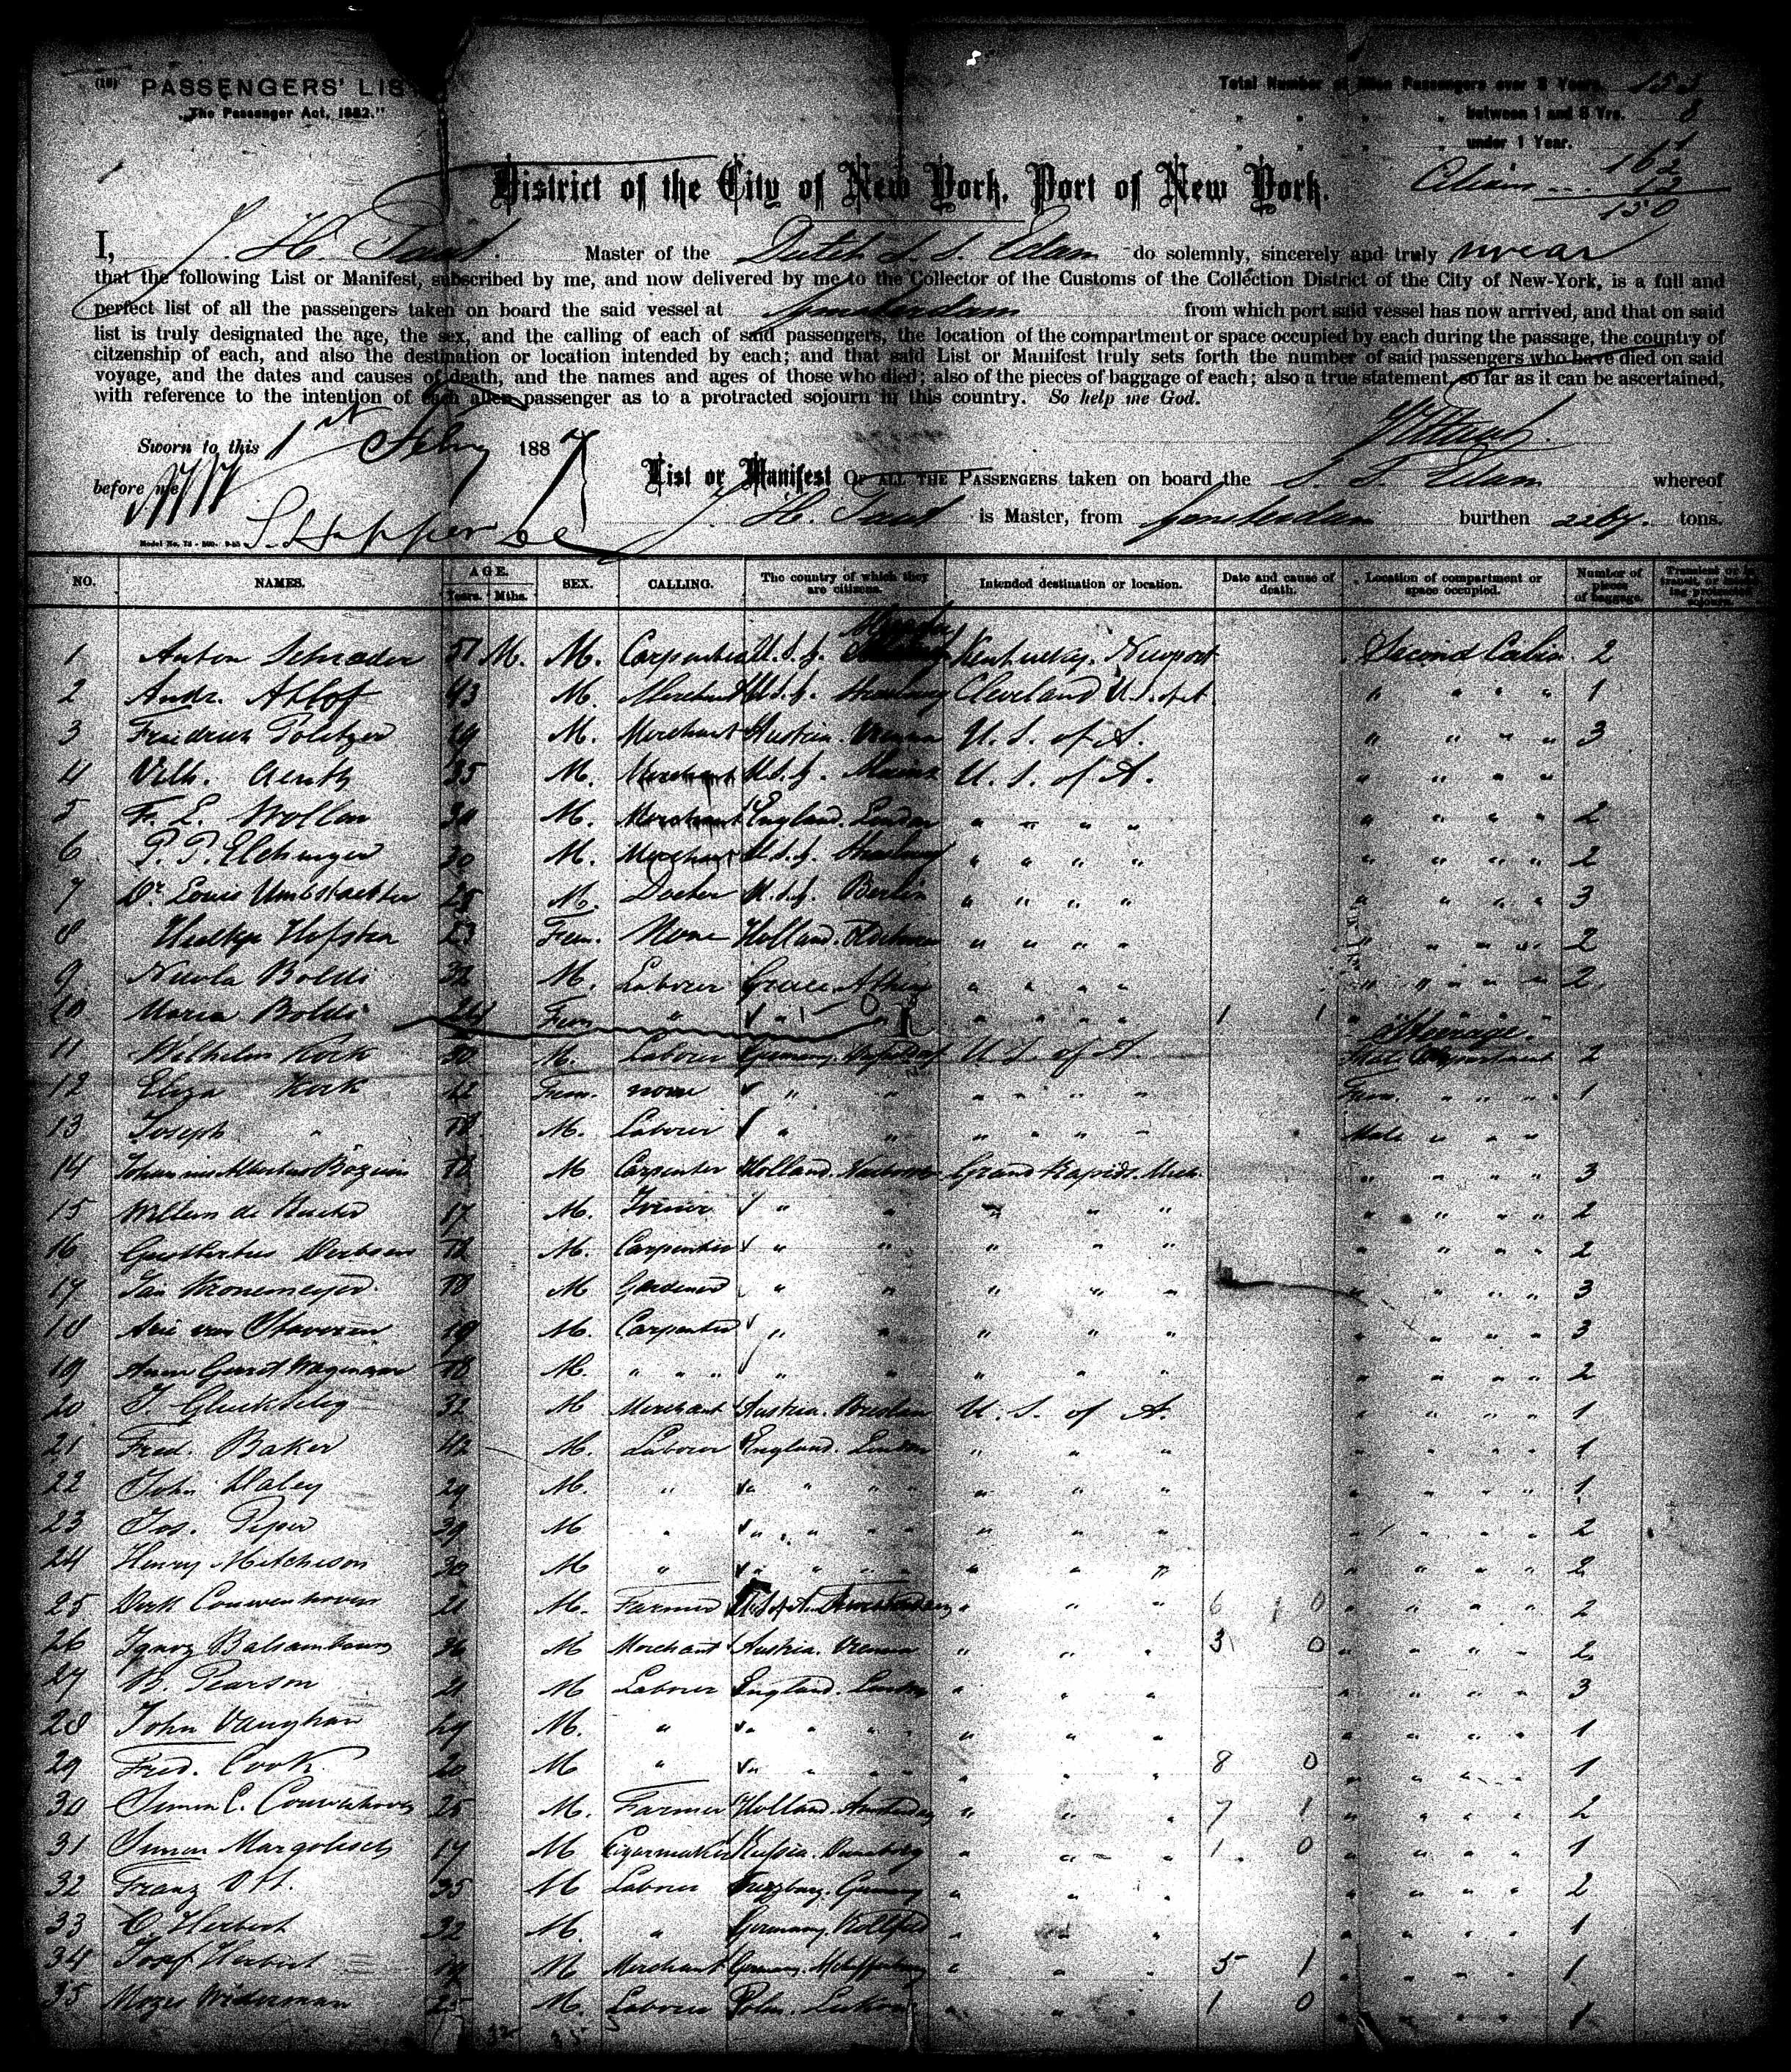 (18) PASSENGERS' LIS
"The Passenger Act, 1882."
Total Number of Alien Passengers over 8 Years. 153
" " " " between 1 and 8 Yrs. 8
" " " " under 1 Year. 1
162
12
150
District of the City of New York, Port of New York.
I, J. H. Taat. Master of the Dutch S. S. Edam do solemnly, sincerely and truly swear
that the following List or Manifest, subscribed by me, and now delivered by me to the Collector of the Customs of the Collection District of the City of New-York, is a full and
perfect list of all the passengers taken on board the said vessel at Amsterdam from which port said vessel has now arrived, and that on said
list is truly designated the age, the sex, and the calling of each of said passengers, the location of the compartment or space occupied by each during the passage, the country of
citzenship of each, and also the destination or location intended by each; and that said List or Manifest truly sets forth the number of said passengers who have died on said
voyage, and the dates and causes of death, and the names and ages of those who died; also of the pieces of baggage of each; also a true statement, so far as it can be ascertained,
with reference to the intention of each alien passenger as to a protracted sojourn in this country. So help me God.
Sworn to this 1st Feby 1887
before me
List or Manifest OF ALL THE PASSENGERS taken on board the S. S. Edam whereof
J. H. Taat is Master, from Amsterdam burthen tons.
NO. NAMES. AGE. Years. Mths. SEX. CALLING. The country of which they are citizens. Intended destination or location. Date and cause of death. Location of compartment or space occupied. Number of pieces of baggage. Transient or in transit, or intending protracted sojourn.
1 Anton Schrader 51 M. M. Carpenter U.S.g. Kentucky. Newport Second Cabin. 2
2 Andr. Ahlof 43 M. Merchant U.S.g. Cleveland U.S. of A. " " " " 1
3 Friedrich Politzer 49 M. Merchant Austria. Vienna U. S. of A. " " " " 3
4 Vilh. 35 M. Merchant U.S.g. Mainz U. S. of A. " " " "
5 F. E. Wollen 30 M. Merchant England. London " " " " " " " " 2
6 P. P. Elchinger 30 M. Merchant U.S.g. " " " " " " " " 2
7 Dr. Louis Umbstaetter 25 M. Docter U.S.g. Berlin " " " " " " " " 3
8 Hofstra 23 Fem. None Holland. " " " " " " " " 2
9 Nicola Boldi 32 M. Labourer Greece Athen " " " " " " " " 2
10 Maria Boldi 24 Fem " " " " " " " 1 1
Steerage.
11 Wilhelm Kock 50 M. Labourer Germany. U. S. of A. Male Compartment 2
12 Eliza Kock 42 Fem. none " " " " " " Fem. " " " 1
13 Joseph " 18 M. Labourer " " " " " " Male " " "
14 Johannes Albertus 18 M Carpenter Holland. Grand Rapids. Mich. " " " " 3
15 Willem de 17 M. " " " " " " " " " 2
16 12 M. Carpenter " " " " " " " " " 2
17 Jan Kronemeyer 18 M Gardener " " " " " " " " " 3
18 Arie van Staveren 19 M. Carpenter " " " " " " " " " 3
19 Gerrit Wagenaar 18 M. " " " " " " " " " " " " 2
20 J. Gluckselig 32 M Merchant Austria. Breslau U. S. of A. " " " " 1
21 Fred. Baker 42 M. Labourer England. London " " " " " " " 1
22 John Haley 29 M. " " " " " " " " " " " " 1
23 Jos. Piper 39 M " " " " " " " " " " " " 2
24 Henry Mitcheson 30 M " " " " " " " " " " " " 2
25 Dirk Couwenhoven 21 M. Farmer U.S. of A. Amsterdam " " " 6 1 0 " " " " 2
26 Ignaz Balsambaum 36 M Merchant Austria. Vienna " " " 3 0 " " " " 2
27 B. Pearson 21 M Labourer England. London " " " " " " " 3
28 John Vaughan 29 M. " " " " " " " " " " " " 1
29 Fred. Cook 20 M " " " " " " " " 8 0 " " " " 1
30 Simon C. Couwenhoven 25 M. Farmer Holland. Amsterdam " " " 7 1 " " " " 2
31 Simon Margolisch 17 M Cigarmaker Russia. Dunaburg " " " 1 0 " " " " 1
32 Franz Ott. 35 M Labourer Wurzburg. Germany " " " " " " " 2
33 C. Herbert 32 M. " Germany. " " " " " " " 1
34 Josef Herbert 19 M Merchant Germany. " " " 5 1 " " " " 1
35 Mozes Widerman 25 M. Labourer Polen. " " " 1 0 " " " " 1